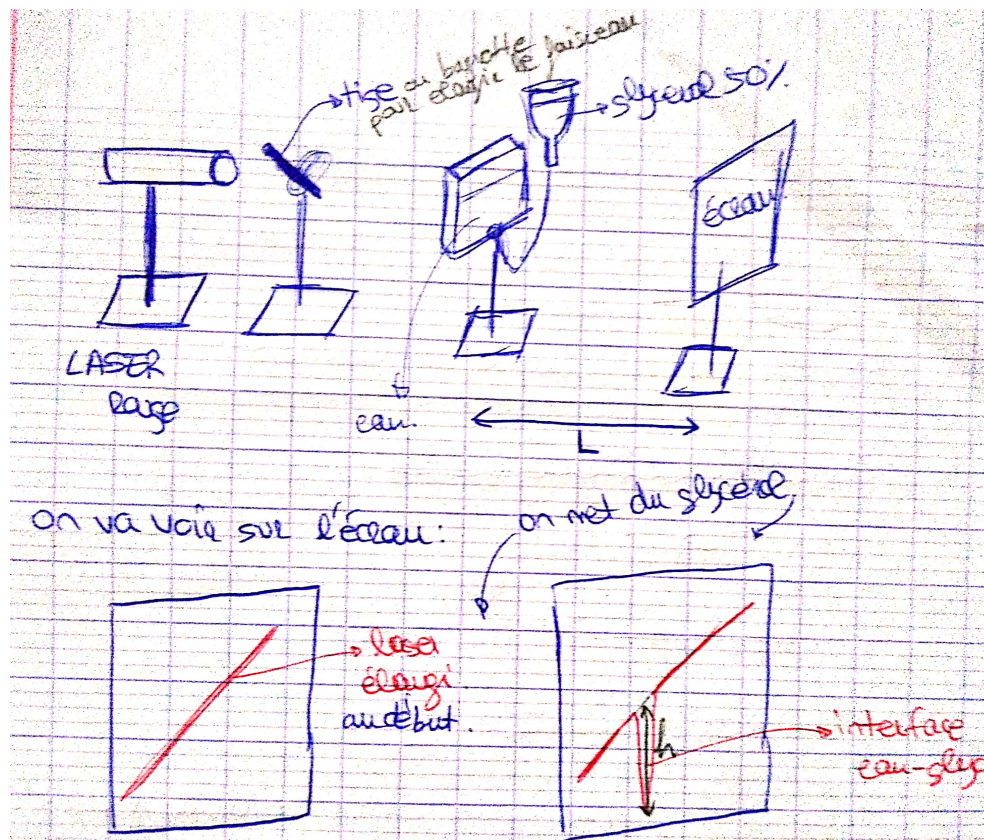 tige ou baguette
pour élargir le faisceau
glycérol 50%
écran
LASER
Rouge
eau.
L
on va voir sur l'écran:
on met du glycérol
laser
élargi
au début.
h
interface
eau-glyc